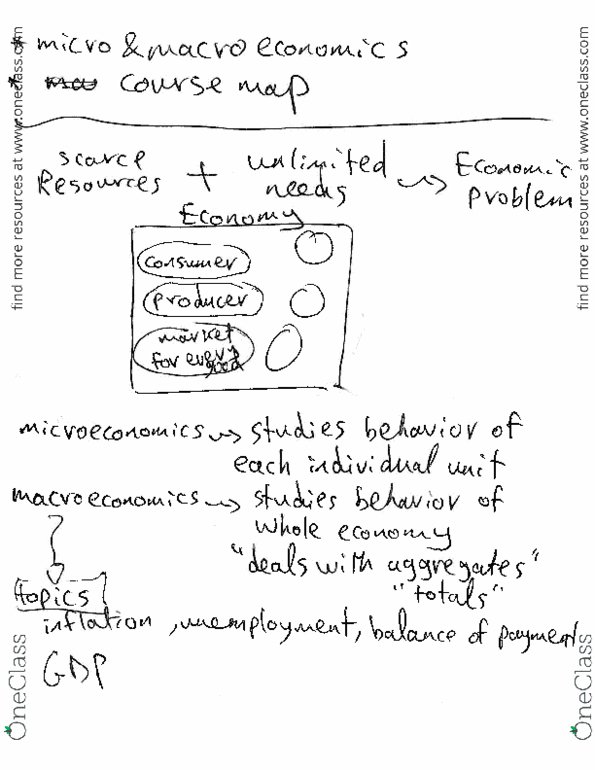 * micro & macroeconomics
* course map
scarce Resources + unlimited needs → Economic problem
Economy
consumer
producer
market
for every
good
microeconomics → studies behavior of
each individual unit
macroeconomics → studies behavior of
whole economy
"deals with aggregates"
"totals"
topics
inflation, unemployment, balance of payment
GDP
find more resources at www.oneclass.com
find more resources at www.oneclass.com
OneClass
OneClass